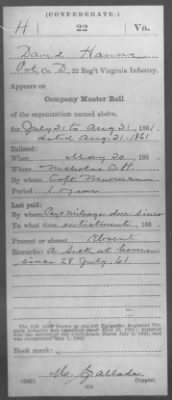 (CONFEDERATE.)
H 22 Va.
David Hanna
Pvt, Co. D, 22 Reg't Virginia Infantry.
Appears on
Company Muster Roll
of the organization named above,
for July 31 to Aug 31, 1861.
dated Aug 31, 1861
Enlisted:
When May 30, 186 .
Where Nicholas C.H.
By whom Capt.
Period 1 year
Last paid:
By whom Pay & Mileage due since
To what time enlistment, 186 .
Present or absent Absent
Remarks: A Sick at home
since 28 July 61
Book mark:
(642) Copyist.